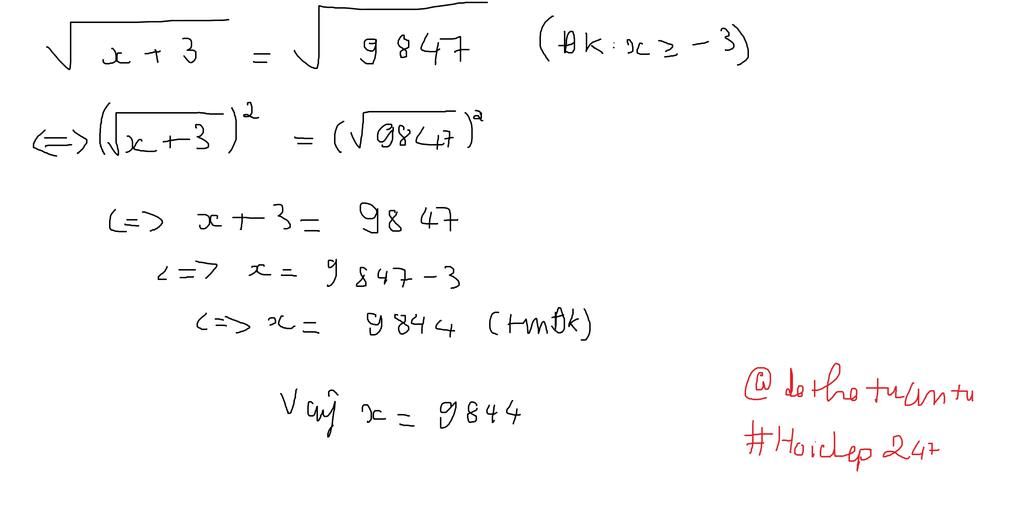 √(x + 3) = √9847 (ĐK: x ≥ -3)
<=> (√(x+3))² = (√9847)²
<=> x + 3 = 9847
<=> x = 9847 - 3
<=> x = 9844 (tmĐk)
Vậy x = 9844
@dothotuantu
#Hoidap247